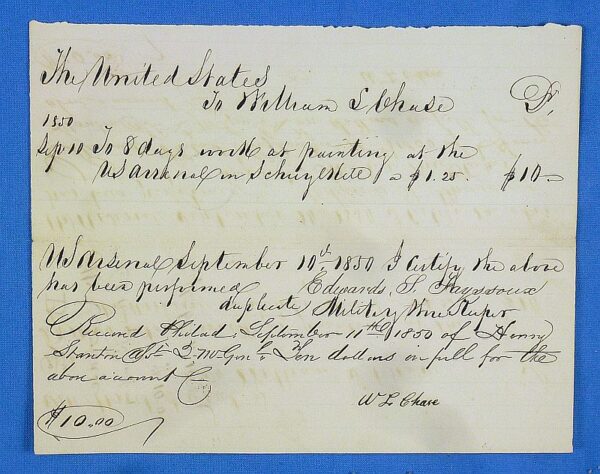 The United States
To William L Chase Dr,
1850
Sep 10 To 8 days work at painting at the
US Arsenal in Schuylkite a $1.25. $10-
US Arsenal September 10th 1850 I certify the above
has been performed Edwards S. Fayssoux
duplicate, Military Store Keeper
Received Philada, September 11th 1850 of Henry
Stanton Qr Genl Ten dollars in full for the
above account
W L Chase
$10.00